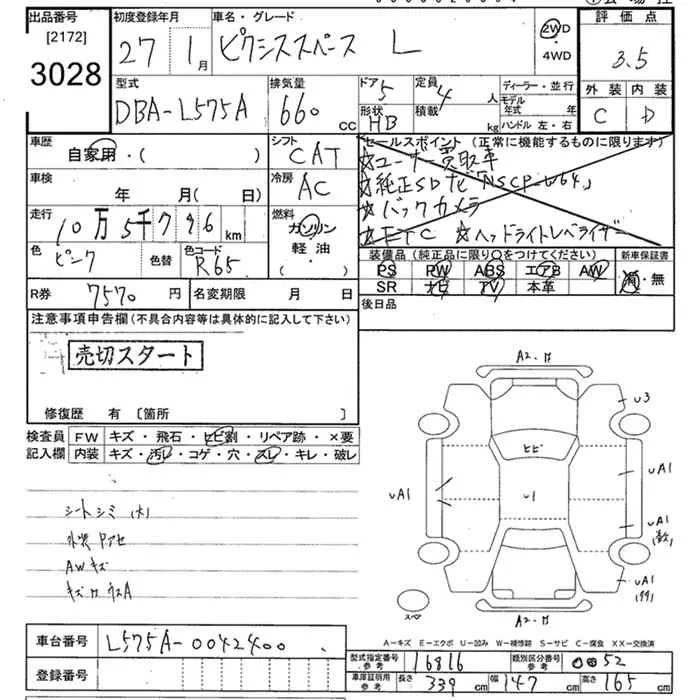 出品番号 初度登録年月 車名・グレード 評価点
[2172]
3028
27年 1月 ピクシススペース L 2WD・4WD 3.5
外装 内装
C D
型式 排気量 ドア 定員 ディーラー・並行
DBA-L575A 660cc 5 4人 モデル年式 年
形状 積載 ハンドル 左・右
HB kg
車歴 シフト セールスポイント (正常に機能するものに限ります)
自家用・( ) CAT ☆ユーザー買取車
車検 冷房 ☆純正SDナビ「NSCP-W64」
年 月(日) AC ☆バックカメラ
走行 燃料 ☆ETC ☆ヘッドライトレベライザー
10万5千796km ガソリン 軽油・( ・ )
色 色替 色コード 装備品 (純正品に限り○をつけてください) 新車保証書
ピンク R65 PS PW ABS エアB AW 有・無
SR ナビ TV 本革
R券 7570円 名変期限 月 日 後日品
注意事項申告欄 (不具合内容等は具体的に記入して下さい)
売切スタート
修復歴 有 [箇所 ]
検査員 FW キズ・飛石・ヒビ割・リペア跡・×要
記入欄 内装 キズ・汚レ・コゲ・穴・スレ・キレ・破レ
シートシミ(大)
AWキズ
A2・
U3
ヒビ
UA1
UA1
U1
UA1
UA1
スペア
A2・
A-キズ E-エクボ U-凹み W-補修跡 S-サビ C-腐食 XX-交換済
車台番号 L575A-0042400
型式指定番号 参考 16816 類別区分番号 参考 0052
登録番号
車庫証明用 参考 長さ 339cm 幅 147cm 高さ 165cm